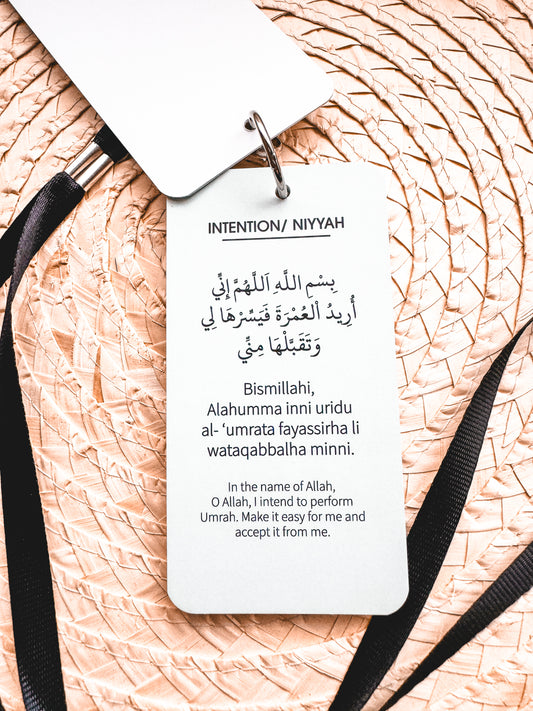 INTENTION/ NIYYAH
بِسْمِ اللَّهِ اَللَّهُمَّ إِنِّي
أُرِيدُ الْعُمْرَةَ فَيَسِّرْهَا لِي
وَتَقَبَّلْهَا مِنِّي
Bismillahi,
Alahumma inni uridu
al- ‘umrata fayassirha li
wataqabbalha minni.
In the name of Allah,
O Allah, I intend to perform
Umrah. Make it easy for me and
accept it from me.